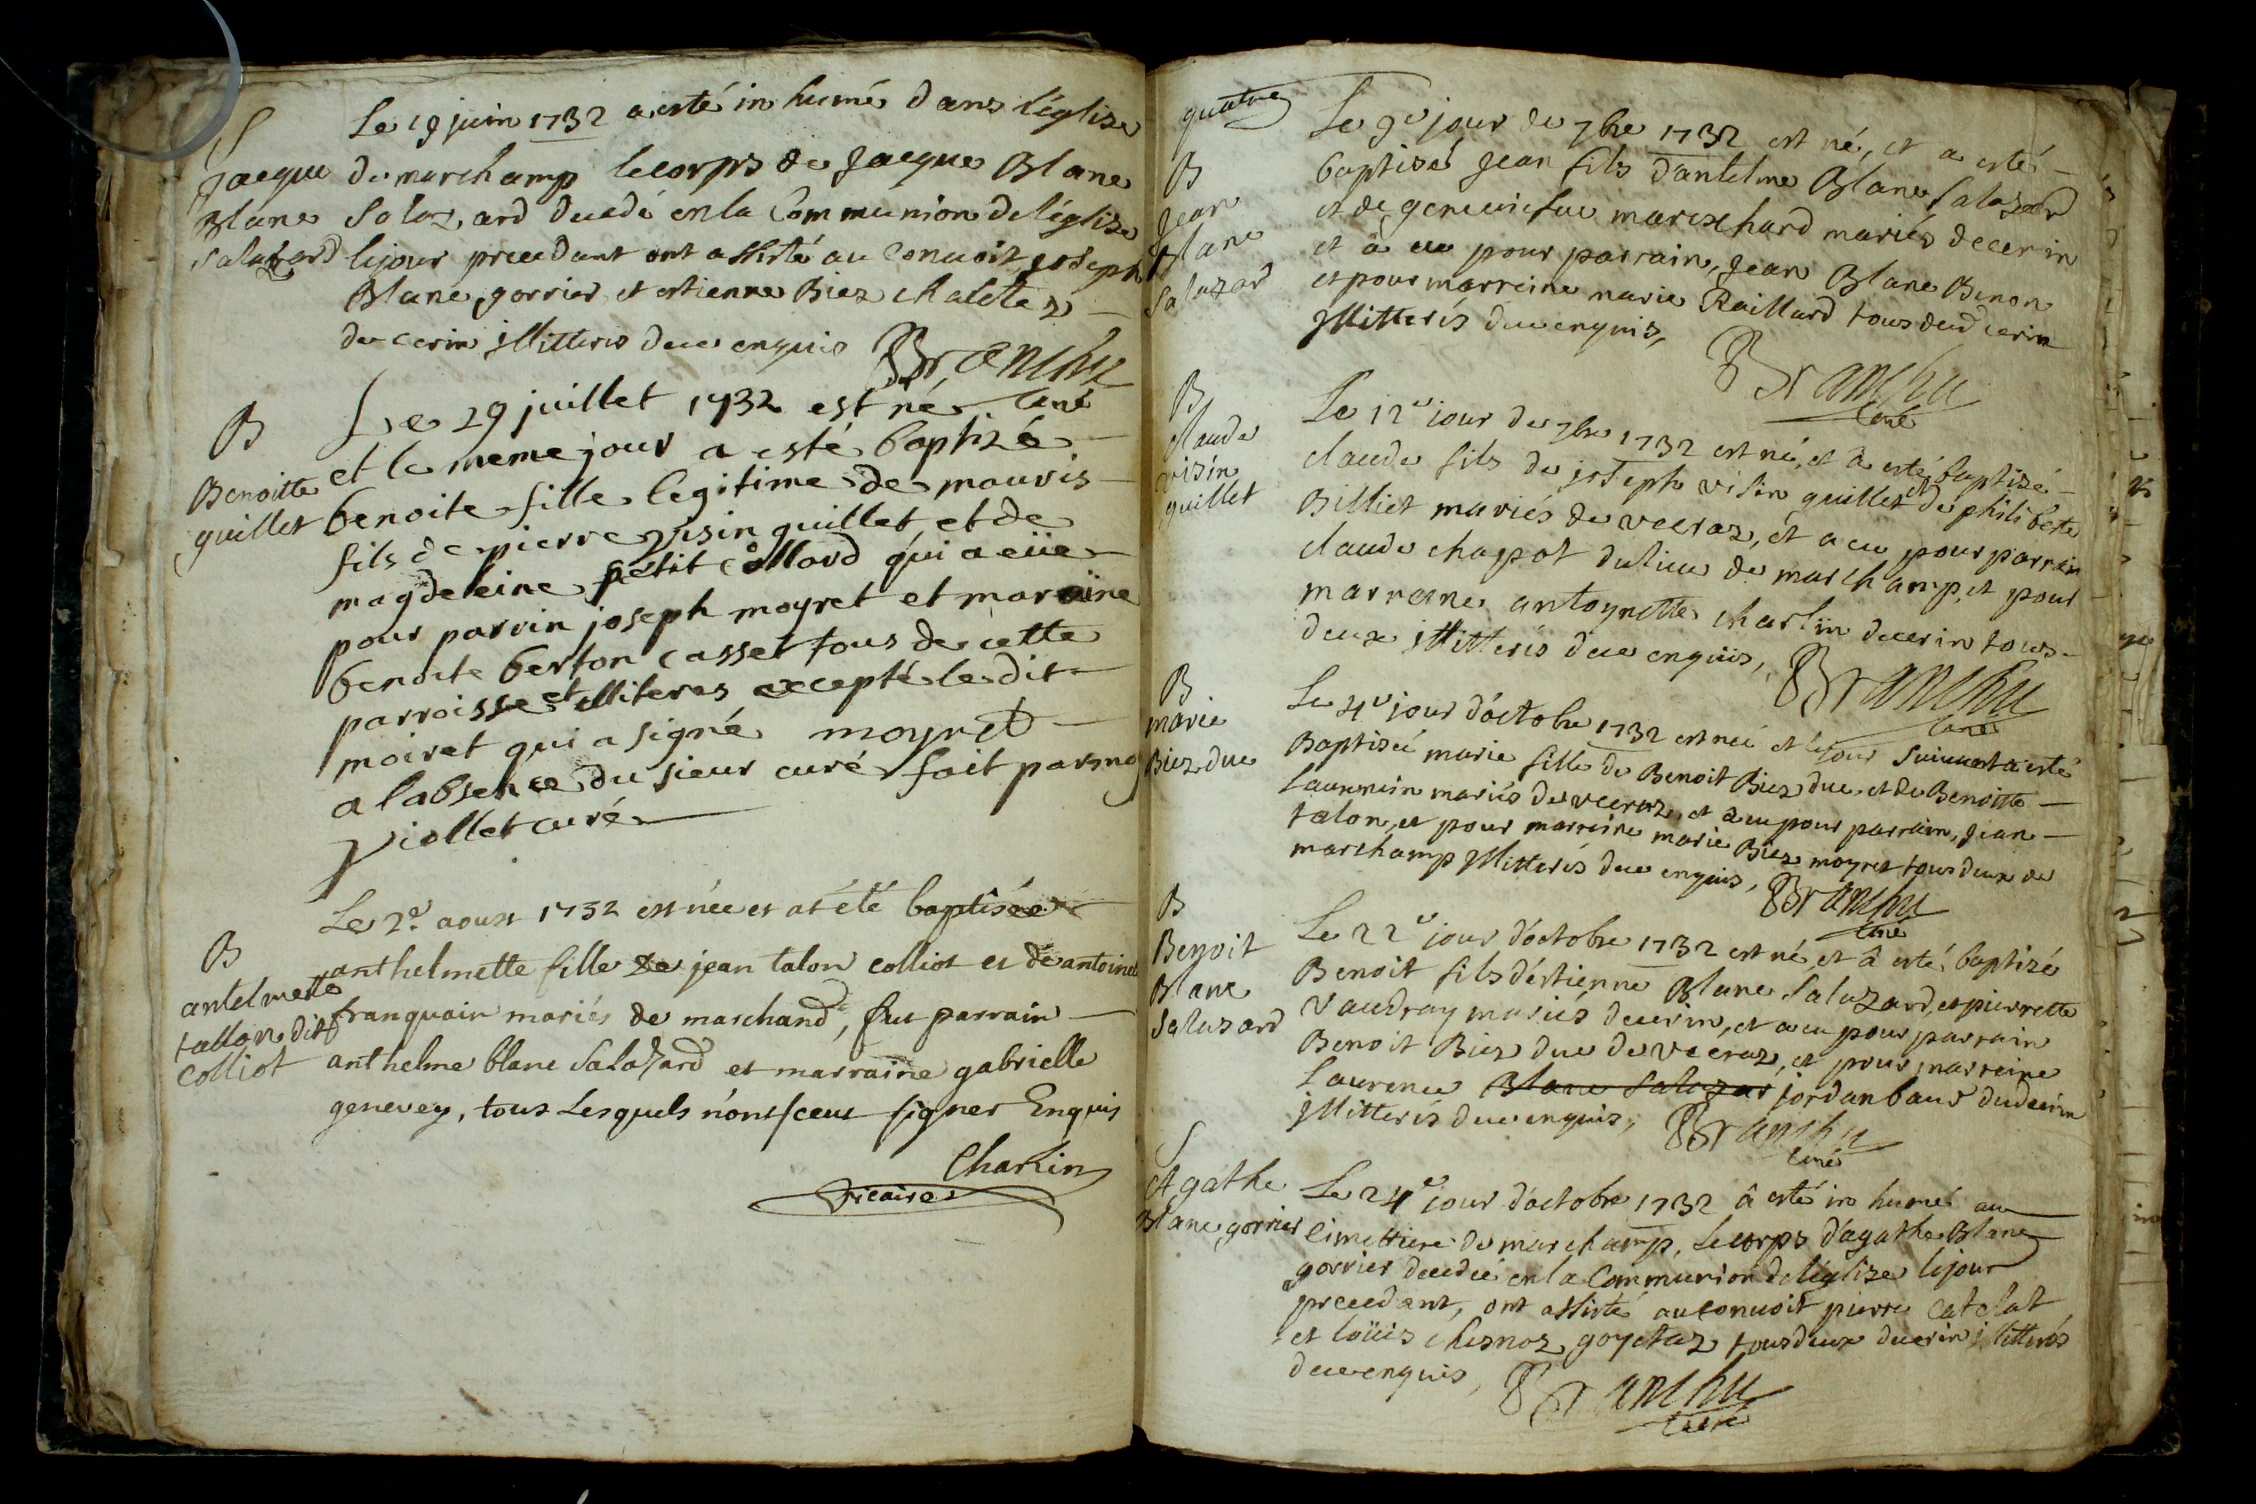 S
Jacque
Blanc
Salazard
Le 19 juin 1732 a esté in humé dans léglise
de marchamp le corps de Jacque Blanc
Salaz,ard decedé en la Communion de léglise
le jour precedant ont assisté au Convoit joseph
Blanc gorrier et estienne Biez chaletez
de cerin jllitteris de ce enquis Branchu
Curé
B
Benoitte
guillet
Le 29 juillet 1732 est né
et le meme jour a esté baptizé
benoite fille legitime de mauris
fils de pierre visin guillet et de
magdeleine petit collard qui a eüe
pour parrin joseph moyret et maraine
benoite berton casset tous de cette
parroisse et illiteres excepté le dit
moiret qui a signé moyret
a labsence du sieur curé fait par moy
viollet curé
B
antelmette
tallon dit
colliot
Le 2e aoust 1732 est née et at été baptisée
anthelmette fille de jean talon colliot et de antoine
franquain mariés de marchand, fut parrain
anthelme blanc Salazard et marraine gabrielle
genevey, tous Lesquels n'ont sceut signer Enquis
Charlin
vicaire
quatre
B
Jean
Blanc
Salazard
Le 9e jour de 7bre 1732 est né, et a esté
baptisé Jean fils dantelme Blanc Salazard
et de geneviefve mareschard mariés de cerin
et â eu pour parrain, Jean Blanc Benon
et pour marreine marie Raillard tous deux de cerin
jllitterés de ce enquis,
Branchu
Curé
B
Claude
visin
guillet
Le 12e jour de 7bre 1732 est né, et â esté baptizé
claude fils de joseph visin guillet et de philiberte
Billiet mariés de veeraz, et a eu pour parrain
claude chapot du lieu de marchamp, et pour
marraine antoynette charlin de cerin tous
deux jllitteris de ce enquis, Branchu
Curé
B
marie
Biez duc
Le 4e jour d'octobre 1732 est neé et le jour suivant a esté
Baptiseé marie fille de Benoit Biez duc et de Benoitte
Laurencin mariés de veeraz, et â eu pour parrain, Jean
talon, et pour marreine marie Biez moyret tous deux de
marchamp jllitterés de ce enquis, Branchu
Curé
B
Benoit
Blanc
Salazard
Le 22e jour d'octobre 1732 est né et â esté baptizé
Benoit fils d'estienne Blanc Salazard, et pierrette
vaudray mariés de cerin, et a eu pour parrain
Benoit Biez duc de veeraz, et pour marreine
Laurence Blanc Salazar jordan baud dud cerin
jllitterés de ce enquis, Branchu
Curé
S
Agathe
Blanc gorrier
Le 24e jour d'octobre 1732 â esté in humé au
Cimettiere de marchamp, le corps d'agathe Blanc
gorrier decedeé en la Communion de léglize le jour
precedant, ont assisté au Convoit pierre catelat
et loüis chesnoz goyetaz tous deux de cerin jllitterés
de ce enquis, Branchu
Curé